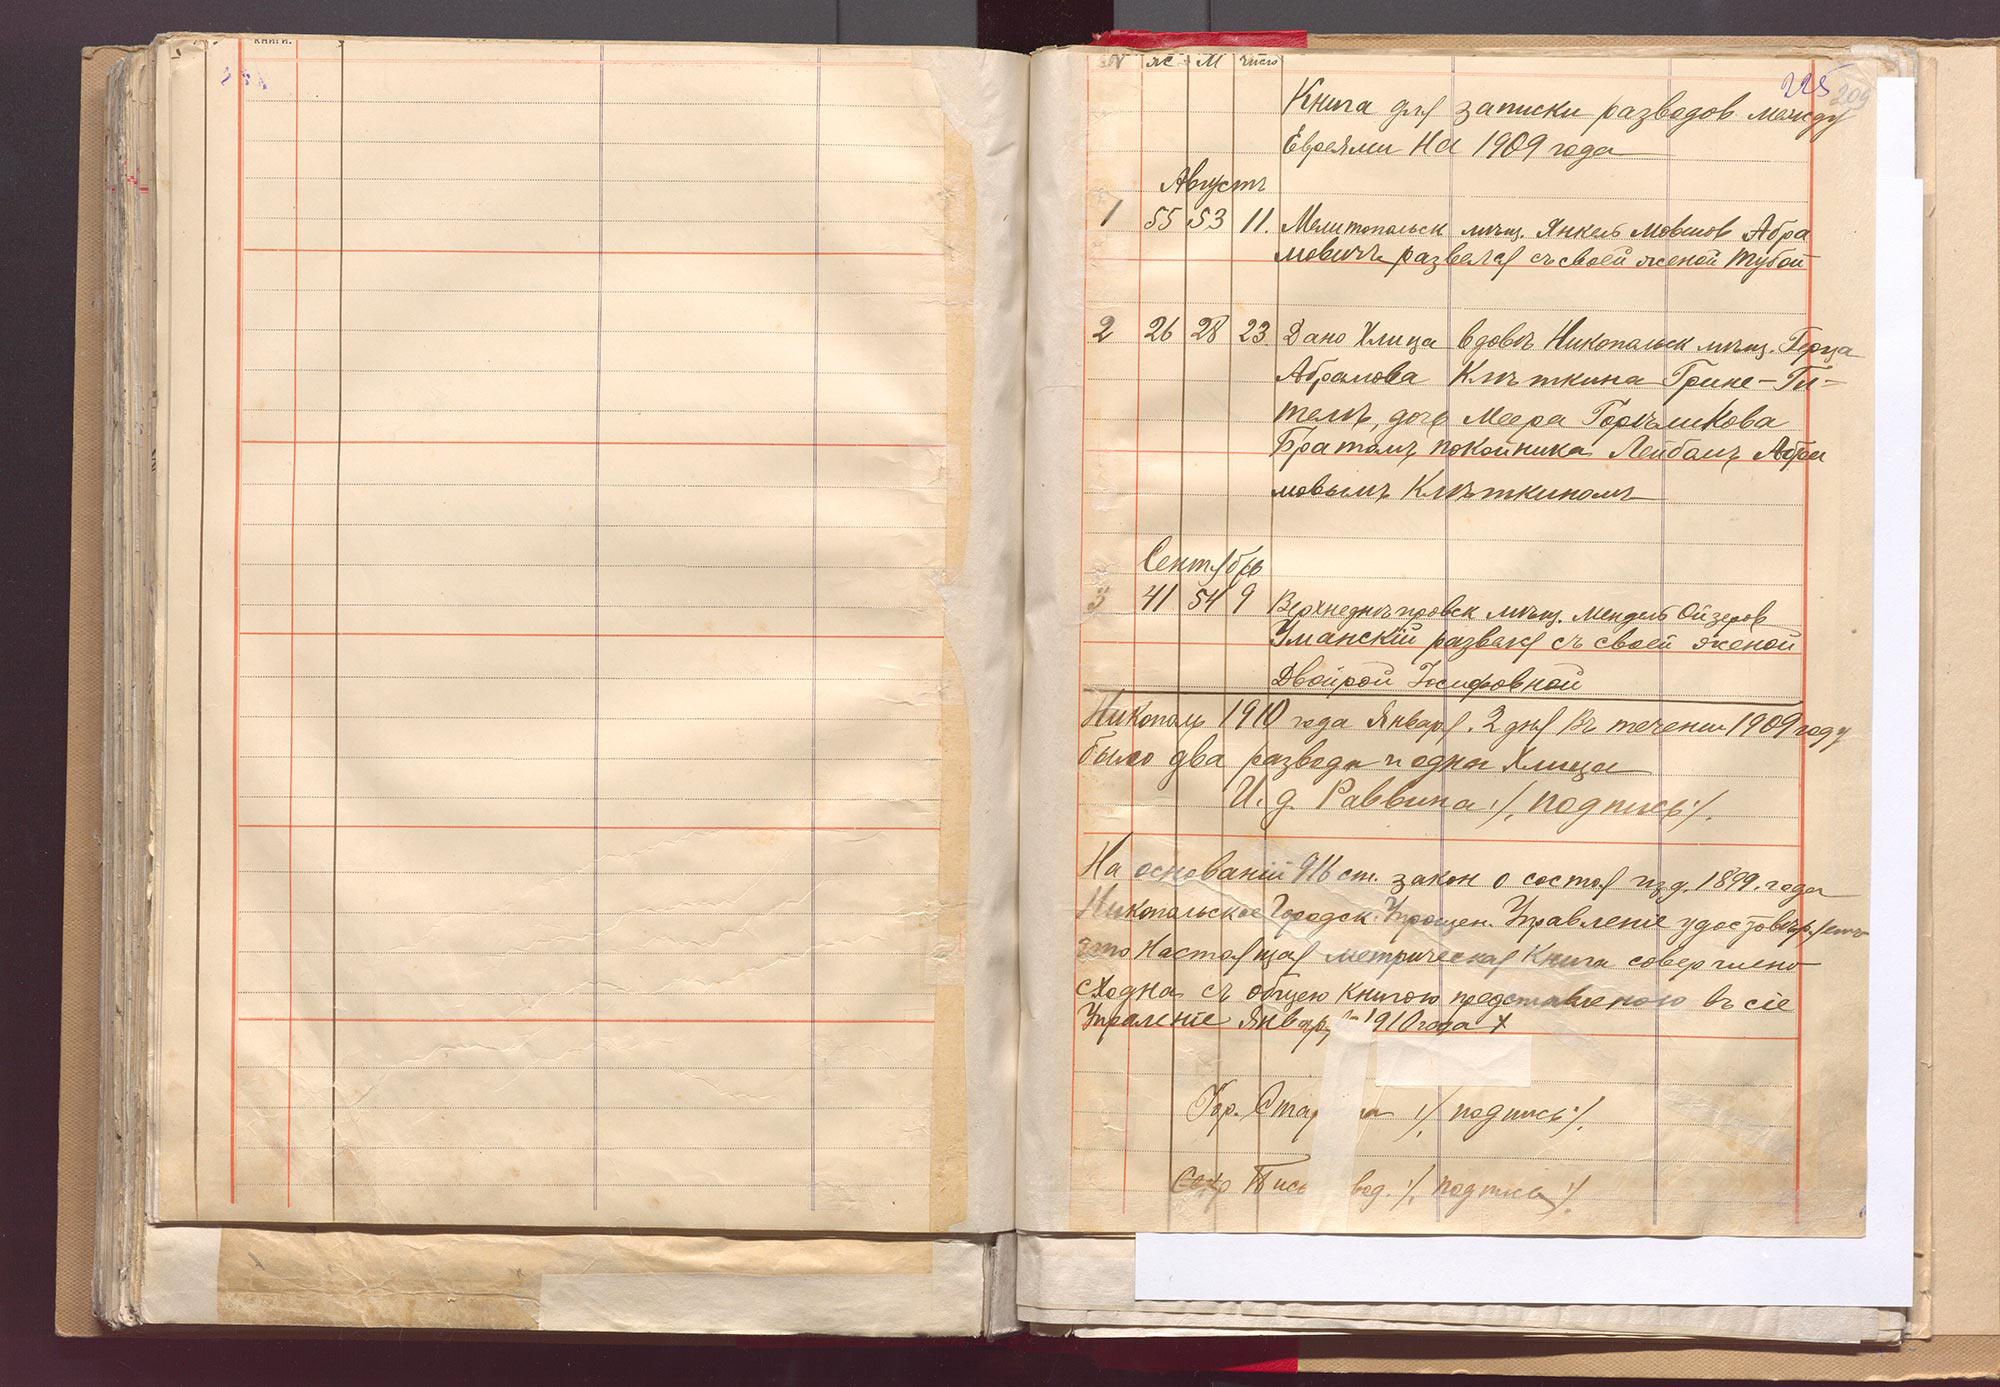 книги.
225 209
№ Же М Число
Книга для записки разводов между
Евреями На 1909 года
Августъ
1 55 53 11. Мелитопольск мѣщ. Янкель Мовшов Абра
мовичъ развелся съ своей женой Тубой
2 26 28 23 Дано Хлица вдовѣ Никопольск мѣщ. Герца
Абрамова Клѣткина Грине-Ги-
телѣ, дочь Меера Горѣликова
Братомъ покойника Лейбомъ Абра
мовымъ Клѣткиномъ
Сентябрь
3 41 54 9 Верхнеднѣпровск мѣщ. Мендель Ойзеров
Уманскій развелся съ своей женой
Двойрой Іосифовной
Никополь 1910 года Января 2 дня Въ течении 1909 году
было два развода и одна Хлица
И. д. Раввина :/, подпись :/.
На основаніи 916 ст. закон о состоя изд. 1899. года
Никопольское Городск. Упрощен. Управленіе удостовѣряетъ
что Настоящая метрическая Книга совершено
сходна съ общею книгою представленою въ сіе
Упраленіе Январ 1910 года
Гор. Стар на :/, подпись :/.
Пись вод. :/, подпись :/.